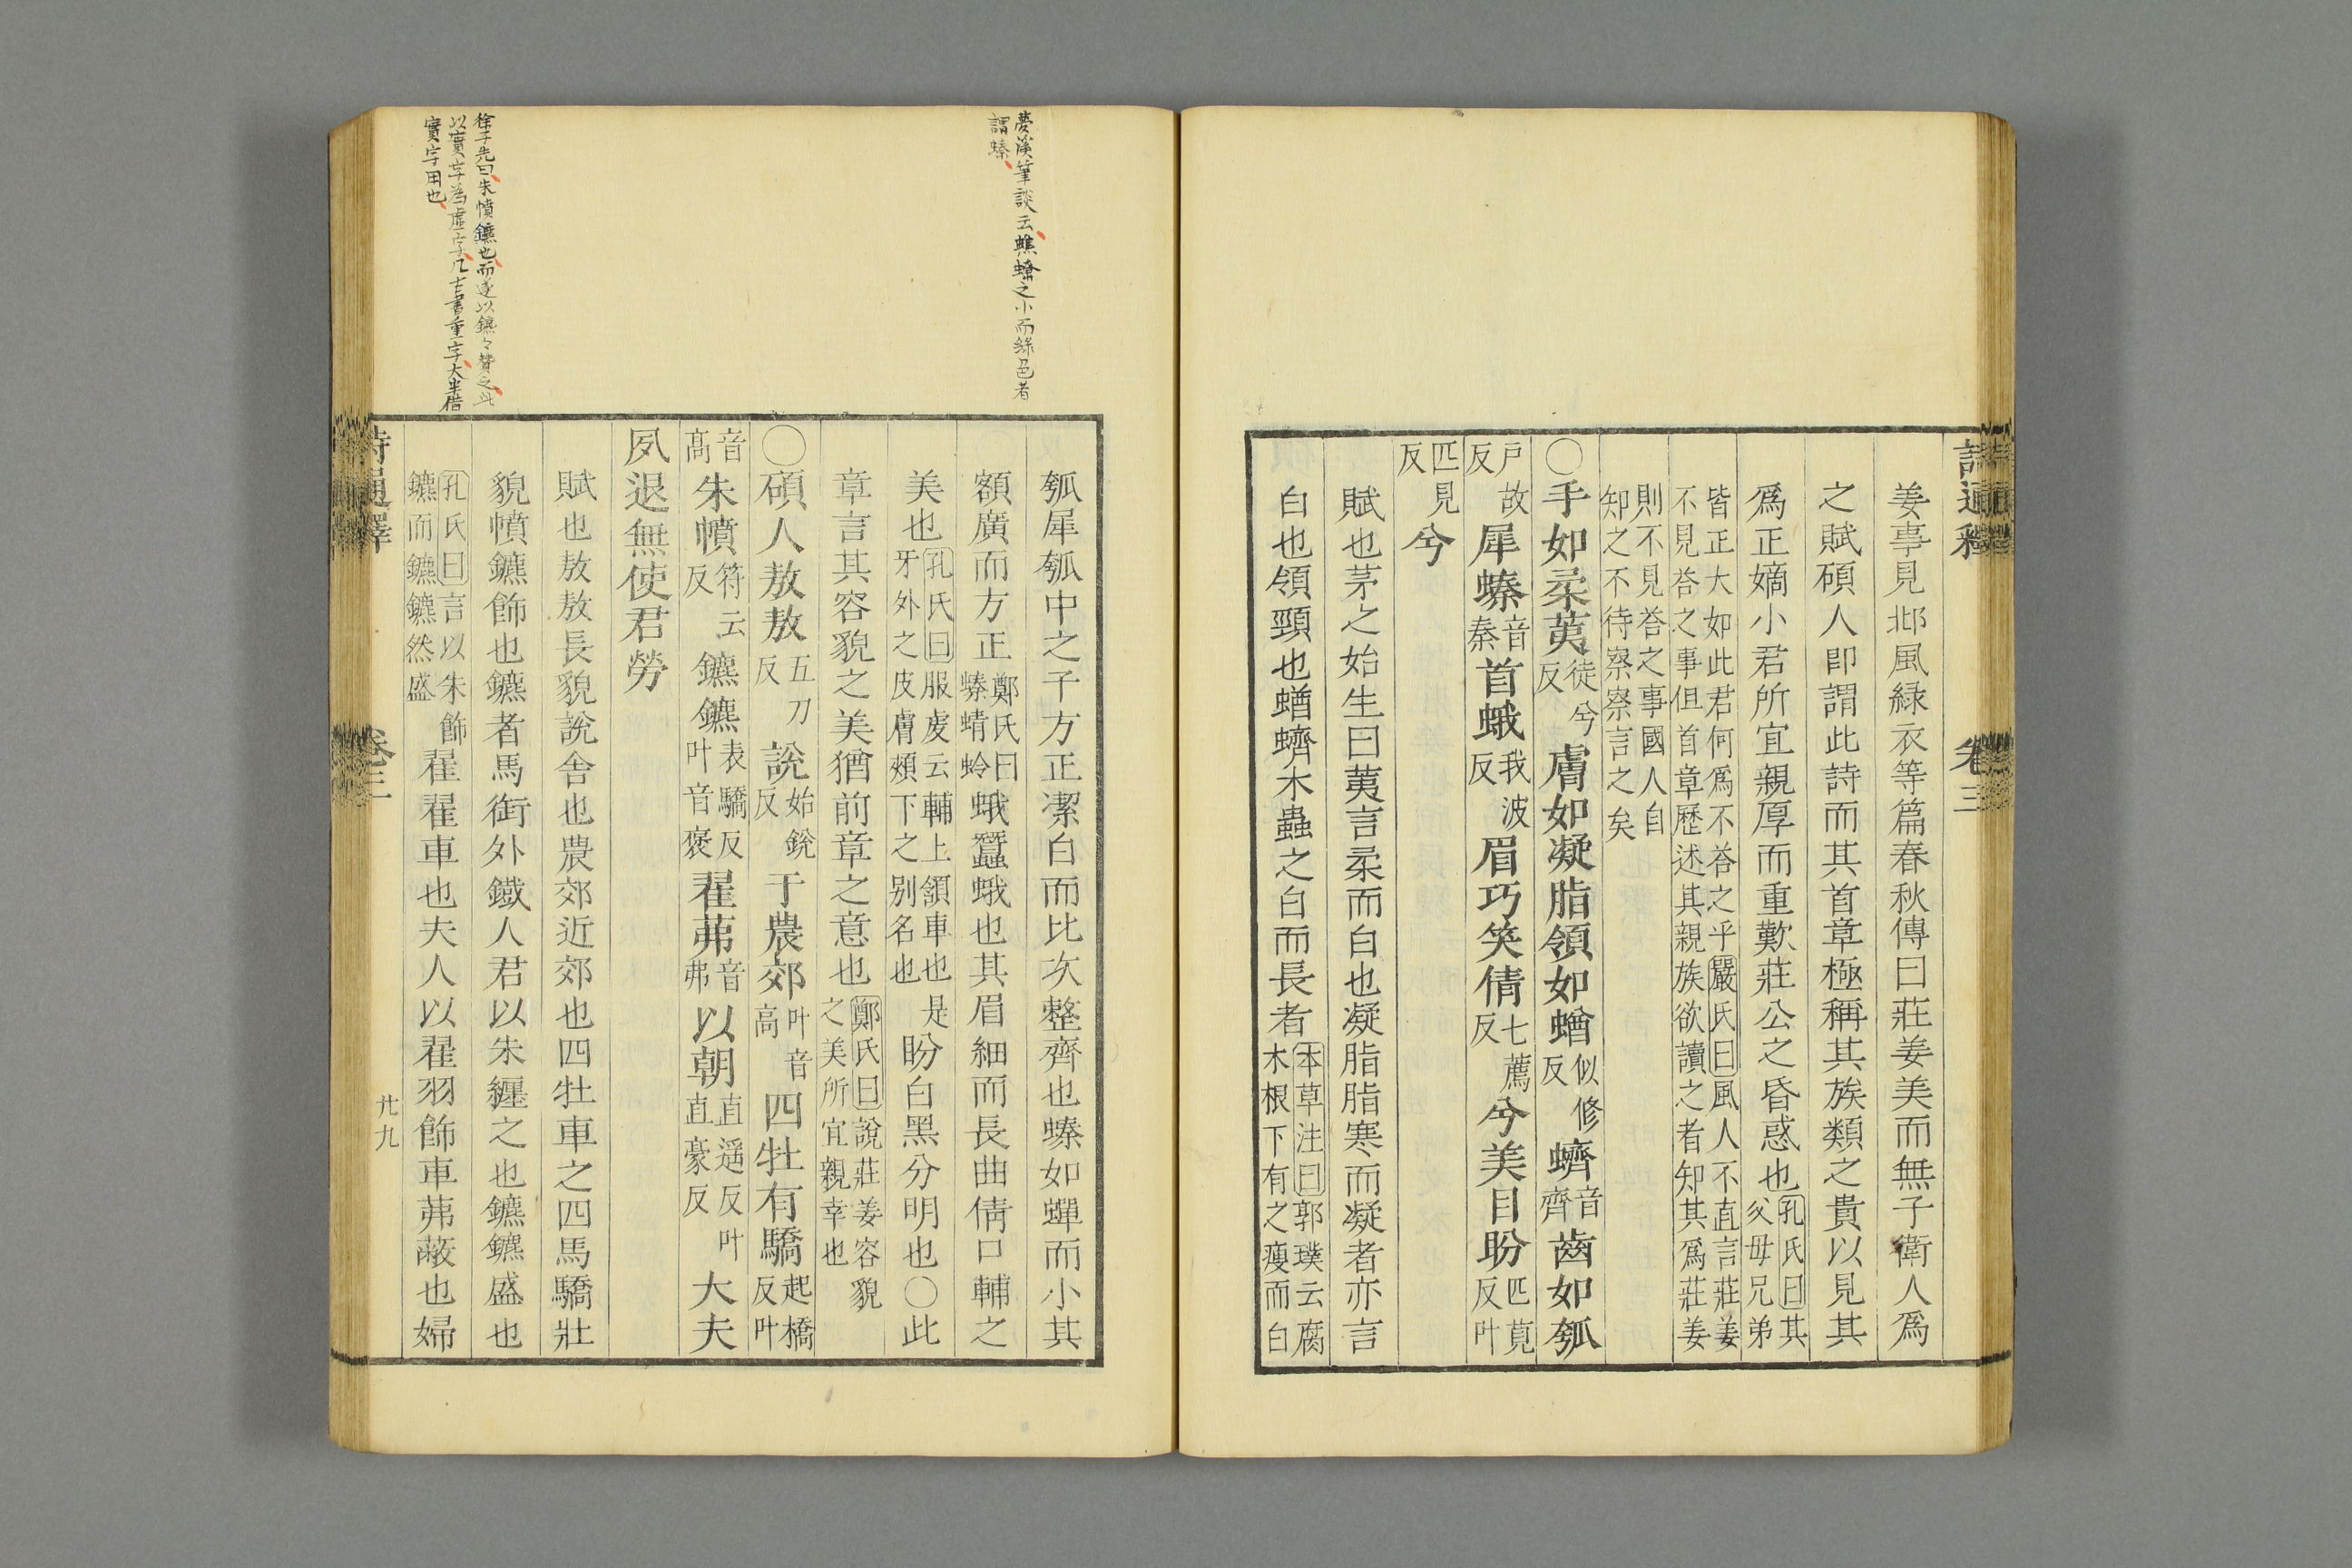 詩通釋 卷三
姜事見邶風綠衣等篇春秋傳曰莊姜美而無子衛人爲
之賦碩人即謂此詩而其首章極稱其族類之貴以見其
爲正嫡小君所宜親厚而重歎莊公之昏惑也孔氏曰其父母兄弟
皆正大如此君何爲不荅之乎嚴氏曰風人不直言莊姜
不見荅之事但首章歷述其親族欲讀之者知其爲莊姜
則不見荅之事國人自
知之不待察察言之矣
○手如柔荑徒兮反膚如凝脂領如蝤似修反蠐音齊齒如瓠
戶故反犀螓音秦首蛾我波反眉巧笑倩七薦反兮美目盼匹莧反叶
匹見反兮
賦也茅之始生曰荑言柔而白也凝脂脂寒而凝者亦言
白也領頸也蝤蠐木蟲之白而長者本草注曰郭璞云腐木根下有之瘦而白
夢溪筆談云蟭蟧之小而綠色者
謂螓
瓠犀瓠中之子方正潔白而比次整齊也螓如蟬而小其
額廣而方正鄭氏曰螓蜻蛉蛾蠶蛾也其眉細而長曲倩口輔之
美也孔氏曰服虔云輔上頷車也是牙外之皮膚頰下之别名也盼白黑分明也○此
章言其容貌之美猶前章之意也鄭氏曰說莊姜容貌之美所宜親幸也
○碩人敖敖五刀反說始銳反于農郊叶音高四牡有驕起橋反叶
音高朱幩符云反鑣鑣表驕反叶音褒翟茀音弗以朝直遥反叶直豪反大夫
夙退無使君勞
賦也敖敖長貌說舍也農郊近郊也四牡車之四馬驕壯
貌幩鑣飾也鑣者馬銜外鐵人君以朱纒之也鑣鑣盛也
孔氏曰言以朱飾鑣而鑣鑣然盛翟翟車也夫人以翟羽飾車茀蔽也婦
徐子先曰朱幩鑣也而遂以鑣々贊之此
以實字為虛字凡古書重字大半借
實字用也
詩通釋 卷三 廿九